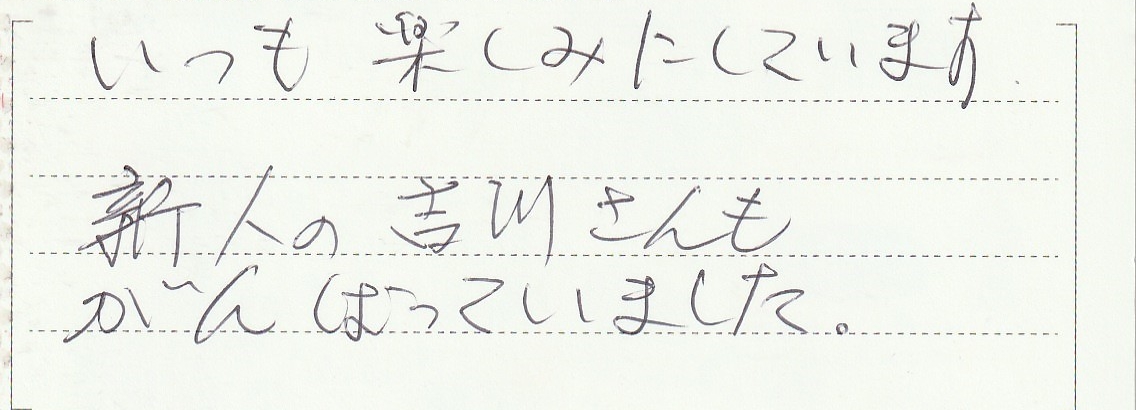 いつも楽しみにしています
新人の吉川さんも
がんばっていました。